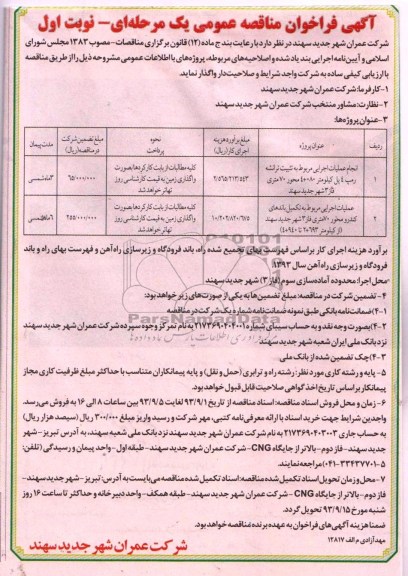 آگهی فراخوان مناقصه عمومی یک مرحله‌ای- نوبت اول
شرکت عمران شهر جدید سهند در نظر دارد با رعایت بند ج ماده (۱۳) قانون برگزاری مناقصات- مصوب ۱۳۸۳ مجلس شورای
اسلامی و آیین‌نامه اجرایی بند یاد شده و اصلاحیه‌های مربوطه، پروژه‌های با اطلاعات عمومی مشروحه ذیل را از طریق مناقصه
با ارزیابی کیفی ساده به شرکت واجد شرایط و صلاحیت‌دار واگذار نماید.
۱-کارفرما: شرکت عمران شهر جدید سهند
۲-نظارت: مشاور منتخب شرکت عمران شهر جدید سهند
۳-عنوان پروژه‌ها:
ردیف عنوان پروژه مبلغ برآورد هزینه اجرای کار (ریال) نحوه پرداخت مبلغ تضمین شرکت در مناقصه (ریال) مدت پیمان
۱ انجام عملیات اجرایی مربوط به تثبیت ترانشه رمپ ۴ پل کیلومتر ۰+۵۸۰ محور ۷۰ متری فاز ۳ شهر جدید سهند کلیه مطالبات از بابت کارکردها بصورت واگذاری زمین به قیمت کارشناسی روز تهاتر خواهد شد ۶۵/۰۰۰/۰۰۰ ۳ماه شمسی
۲ عملیات اجرایی مربوط به تکمیل باندهای کندرو محور ۷۰ متری فاز ۳ شهر جدید سهند کلیه مطالبات از بابت کارکردها بصورت واگذاری زمین به قیمت کارشناسی روز تهاتر خواهد شد ۲۵۵/۰۰۰/۰۰۰ ۶ماه شمسی
برآورد هزینه اجرای کار براساس فهرست بهای تجمیع شده راه، باند فرودگاه و زیرسازی راه‌آهن و فهرست بهای راه و باند
فرودگاه و زیرسازی راه‌آهن سال ۱۳۹۳
محل اجرا: محدوده آماده‌سازی سوم (فاز ۳) شهر جدید سهند
۴- تضمین شرکت در مناقصه: مبلغ تضمین‌ها به یکی از صورت‌های زیر خواهد بود:
۱-۴) ضمانت نامه بانکی طبق نمونه ضمانت‌نامه شماره یک شرکت در مناقصه
۲-۴) بصورت وجه نقد و به حساب سیبای شماره ۲۱۷۳۶۹۰۴۰۴۰۰۱ به نام تمرکز وجوه سپرده شرکت عمران شهر جدید سهند
نزد بانک ملی ایران شعبه شهر جدید سهند
۳-۴) چک تضمین شده از بانک ملی
۵- پایه و رشته کاری مورد نظر: رشته راه و ترابری (حمل و نقل) و پایه پیمانکاران متناسب با حداکثر مبلغ ظرفیت کاری مجاز
پیمانکار براساس تاریخ اخذ گواهی صلاحیت قابل قبول خواهد بود.
۶- زمان و محل فروش اسناد مناقصه: اسناد مناقصه از تاریخ ۹۳/۹/۱ لغایت ۹۳/۹/۵ بین ساعات ۸ الی ۱۶ به فروش می‌رسد.
واجدین شرایط جهت خرید اسناد با ارائه معرفی‌نامه کتبی، مهر شرکت و رسید واریز مبلغ ۳۰۰/۰۰۰ ریال (سیصد هزار ریال)
به حساب جاری ۲۱۷۳۶۹۰۴۰۳۰۰۳ به نام شرکت عمران شهر جدید سهند نزد بانک ملی شعبه سهند، به آدرس تبریز- شهر
جدید سهند- فاز دوم- بالاتر از جایگاه CNG- شرکت عمران شهر جدید سهند- طبقه اول- واحد پیمان و رسیدگی (تلفن:
۰۴۱-۳۳۴۳۷۷۰۱-۵) مراجعه نمایند.
۷- محل و زمان تحویل اسناد تکمیل شده مناقصه: اسناد تکمیل شده مناقصه می‌بایست به آدرس: تبریز- شهر جدید سهند-
فاز دوم- بالاتر از جایگاه CNG- شرکت عمران شهر جدید سهند- طبقه همکف- واحد دبیرخانه و حداکثر تا ساعت ۱۶ روز
شنبه مورخ ۹۳/۹/۱۵ تحویل گردد.
ضمنا هزینه آگهی‌های فراخوان به عهده برنده مناقصه خواهد بود.
مهد آزادی م الف ۱۲۸۱۷
شرکت عمران شهر جدید سهند